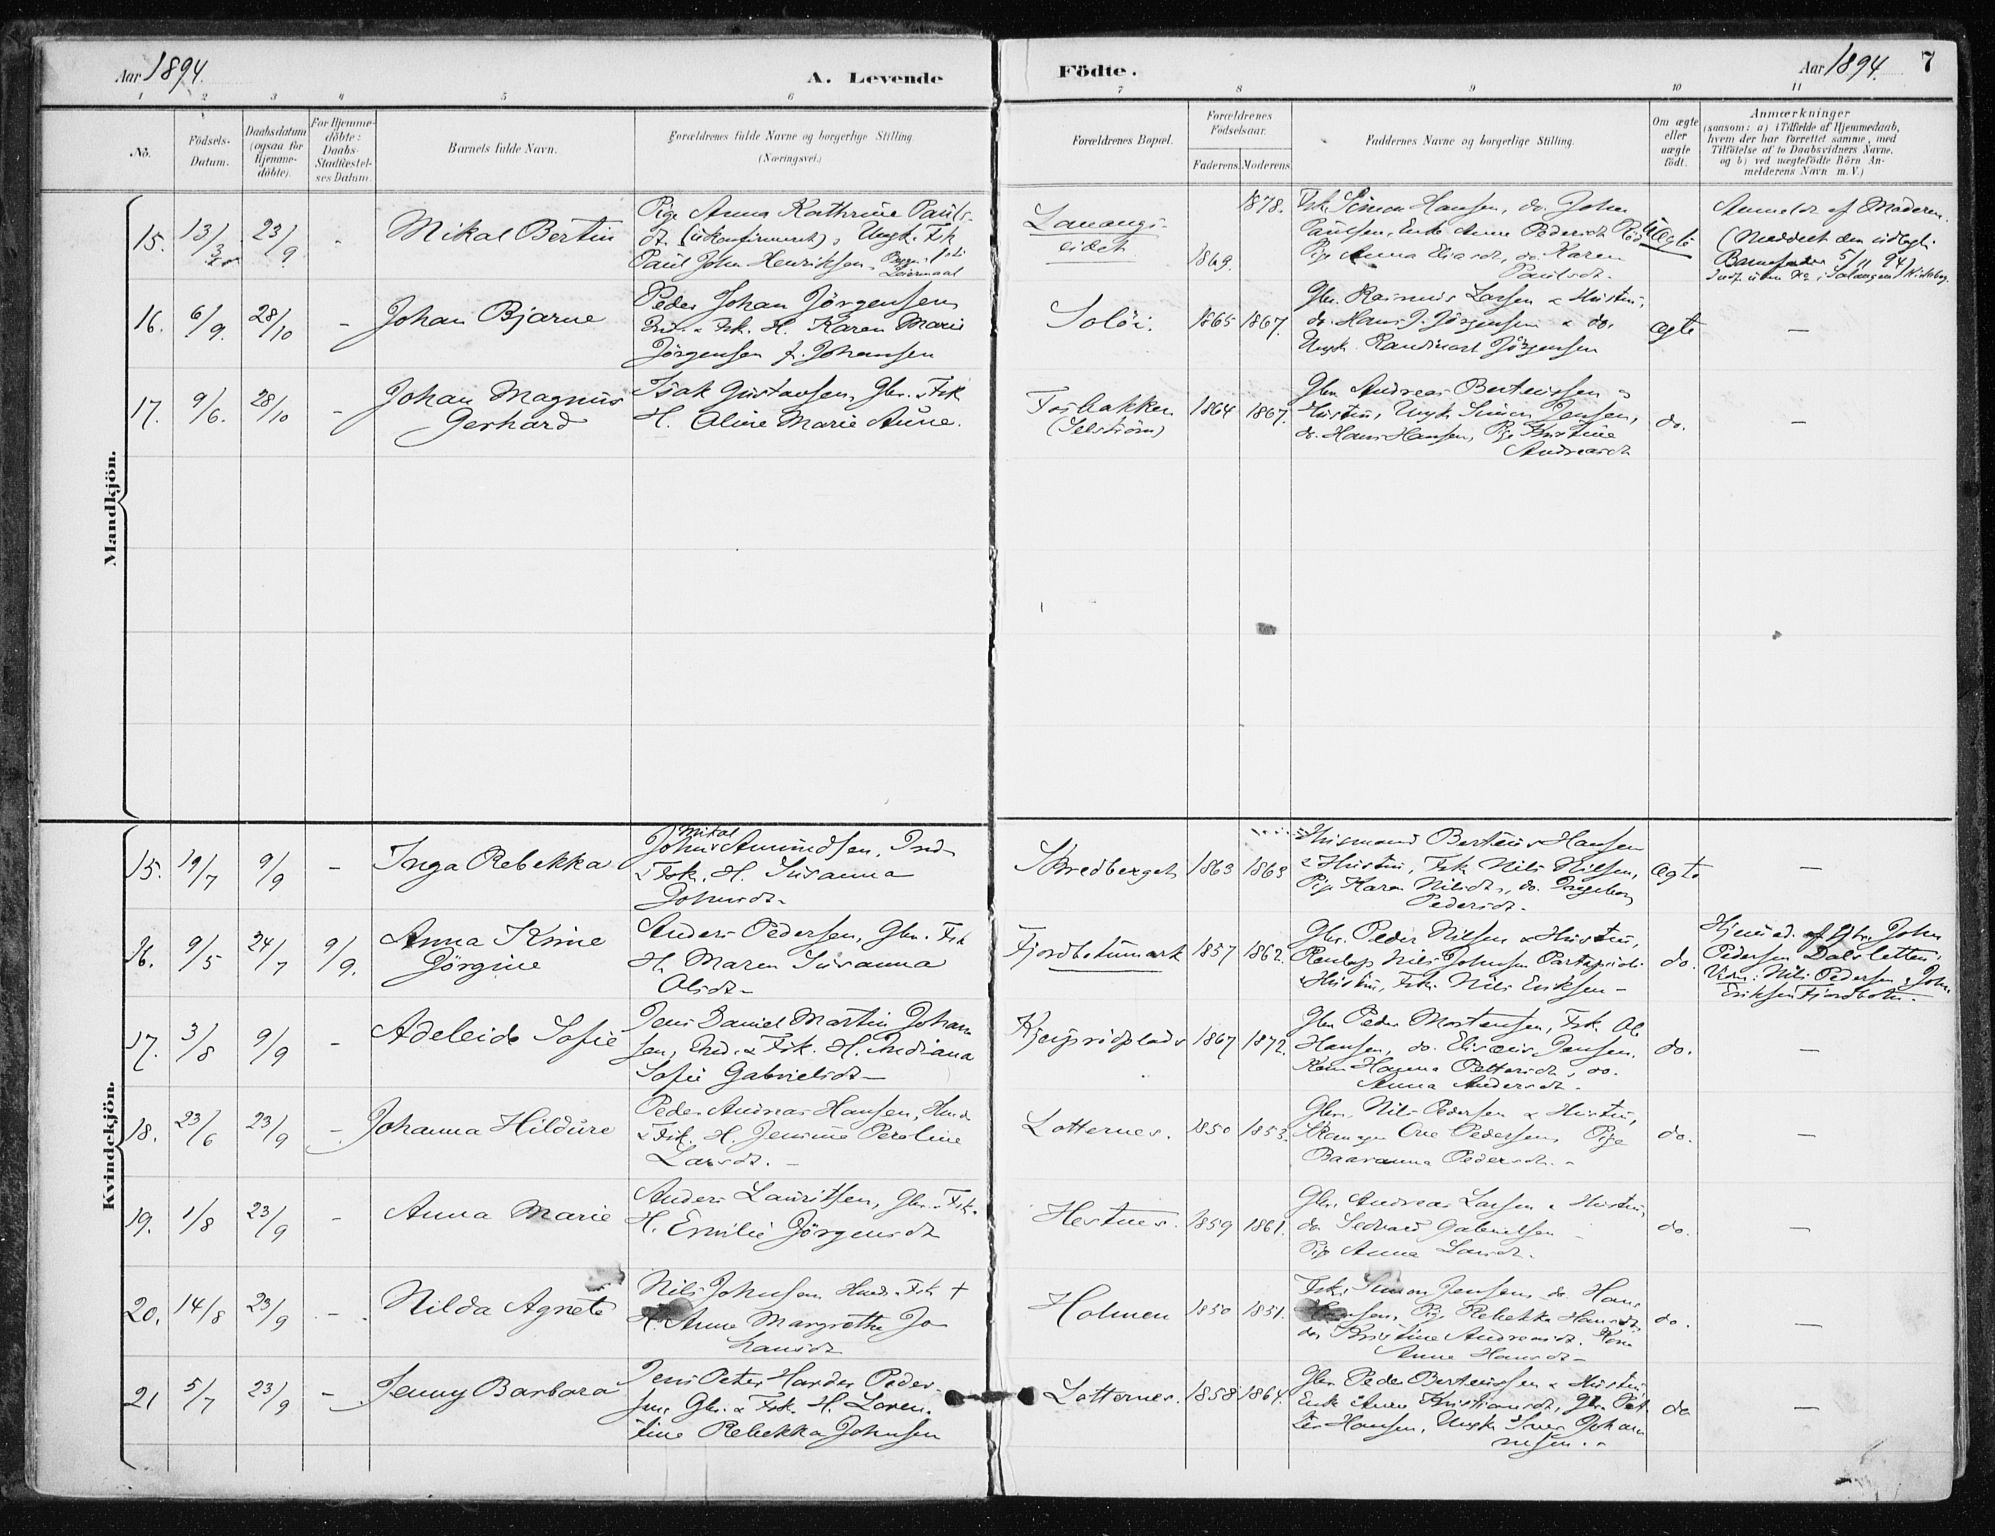 Aar 1894.
A. Levende
Födte.
Aar 1894. 7
1 2 3 4 5 6 7 8 9 10 11
No.
Födsels-
Datum.
Daabsdatum
(ogsaa for
Hjemme-
döbte).
For Hjemme-
döbte:
Daabs-
Stadfæstel-
ses Datum.
Barnets fulde Navn.
Forældrenes fulde Navne og borgerlige Stilling.
(Næringsvei.)
Forældrenes Bopæl.
Forældrenes
Födselsaar.
Faderens. Moderens.
Faddernes Navne og borgerlige Stilling.
Om ægte
eller
uægte
födt.
Anmærkninger
(saasom: a) i Tilfælde af Hjemmedaab,
hvem der har forrettet samme, med
Tilföielse af to Daabsvidners Navne,
og b) ved uægtefödte Börn An-
melderens Navn m. V.)
Mandkjön.
15. 13/3 23/9 -
Mikal Bertin
Pige Anna Kathrine Pauls-
dt. (ukonfirmeret) Ungk. Fsk
Paul John Henriksen
eidet
1878.
1869.
Fsk. Simon Hansen, do. John
Paulsen, Enke Anne Pedersdt
Pige Anna Eliasdt, do. Karen
Paulsdt.
Uægte
Anmeldt af Moderen.
(Meddelt den udlagte
Barnefader 5/11 94)
16. 6/9. 28/10 -
Johan Bjarne
Peder Johan Jörgensen
Ind. & Fsk. H. Karen Marie
Jörgensen f. Johansen
Solöi.
1865 1867.
Gbr. Rasmus Larsen & Hustru,
do. Hans J. Jörgensen & do.
Ungk. Jörgensen
ægte
-
17. 9/6. 28/10 -
Johan Magnus
Gerhard
Isak Gustavsen, Gbr. & Fsk
H. Oline Marie Aune.
Fosbakken
(Selström)
1864 1867.
Gbr Andreas Berteussen &
Hustru, Ungk Simon Jensen,
do. Hans Hansen, Pige Kristine
Andreasdt
do.
-
Kvindekjön.
15. 19/7 9/9 -
Inga Rebekka
Mikal
John Amundsen, Ind
& Fsk. H. Susanna
Johnsdt.
Skredberget
1863 1863
Husmand Berteus Hansen
& Hustru, Fsk Nils Nilsen,
Pige Karen Nilsdt, do. Ingeborg
Pedersdt.
ægte
-
16. 9/5 24/7 9/9.
Anna Kirne
Jörgine
Anders Pedersen, Gbr. Fsk
H. Maren Susanna
Olsdt
Fjordbotnmark
1857 1862.
Gbr. Peder Nilsen & Hustru,
Nils Johnsen
& Hustru, Fsk. Nils Eriksen
do.
Hjemmed. af Gbr. John
Pedersen Dalsletten.
Vidn: Nils Pedersen, John
Eriksen Fjordbotn.
17. 3/8 9/9 -
Adeleide Sofie
Jens Daniel Martin Johan
sen, Ind. & Fsk. H. Indiana
Sofie Gabrielsdt
1867 1872.
Gbr Peder Mortensen, Fsk. Ole
Hansen, do. Elisæus Jensen,
Kone Hagena Pettersdt, do.
Anna Andersdt.
do.
-
18. 23/6 23/9 -
Johanna Hildure
Peder Andreas Hansen, Husm
& Fsk. H. Jensine Peroline
Larsdt.
Lotternes.
1850 1853.
Gbr. Nils Pedersen & Hustru,
Ole Pedersen, Pige
Pedersdt.
do.
-
19. 1/8 23/9 -
Anna Marie
Anders Lauritsen, Gbr. Fsk.
H. Emilie Jörgensdt
Hestnes.
1859 1861.
Gbr. Andreas Larsen & Hustru,
do Gabrielsen
Pige Anna Larsdt.
do.
-
20. 14/8 23/9 -
Hilda Agnete
Nils Johnsen Husm. Fsk +
H. Anne Margrethe Jo
hansdt
Holmen
1850 1851.
Fsk. Simon Jensen, do. Hans
Hansen, Pige Rebekka Hansdt,
do. Kristine Andreasdt. Kone
Anne Hansdt
do.
-
21 5/7 23/9 -
Jenny Barbara
Jens Peter Harder Peder-
sen, Gbr. & Fsk. H. Loren-
tine Rebekka Johnsen
Lotternes.
1858 1864.
Gbr Peder Berteussen & Hustru,
Enke Anne Kristiansdt, Gbr. Pet-
ter Hansen, Ungk Johan
nesen.
do
-